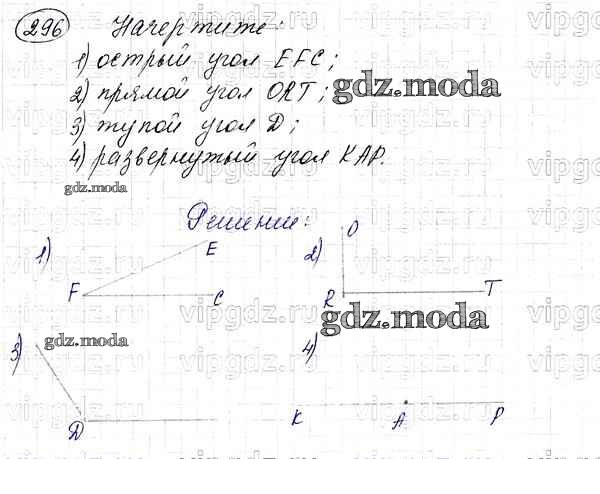 296 Начертите:
1) острый угол EFC;
2) прямой угол ORT;
gdz.moda
3) тупой угол D;
4) развернутый угол KAP.
gdz.moda
Решение:
1) E F C
2) O R T
gdz.moda
3) D
gdz.moda
4) K A P
vipgdz.ru